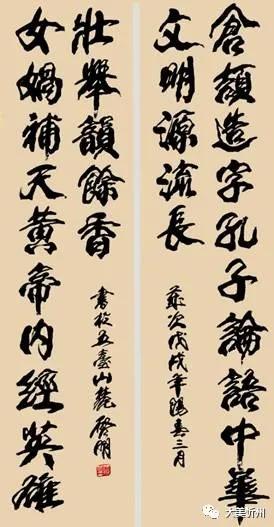 倉頡造字孔子論語中華
文明源流長
歲次戊戌年陽春三月
女媧補天黃帝內經英雄
壯舉韻餘香
書於五臺山麓 啓明
大美忻州